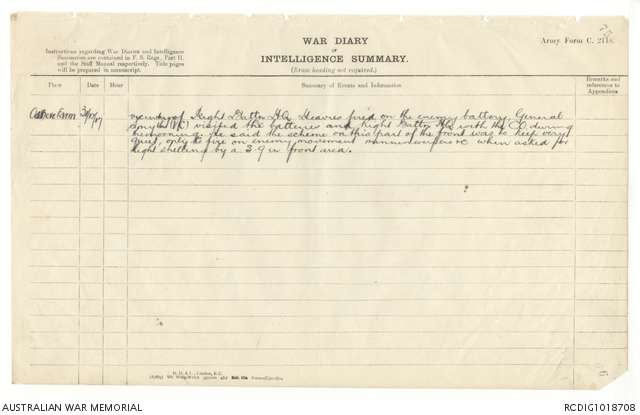 WAR DIARY
or
INTELLIGENCE SUMMARY.
(Erase heading not required.)
Army Form C. 2118.
Instructions regarding War Diaries and Intelligence
Summaries are contained in F. S. Regs., Part II.
and the Staff Manual respectively. Title pages
will be prepared in manuscript.
Place
Date
Hour
Summary of Events and Information
Remarks and
references to
Appendices
vicinity of Right Battn HQ. Heavies fired on the enemy battery. General
visited the batteries and Right Battn HQ with the CO during
the morning. He said the scheme on this part of the front was to keep very
quiet, only to fire on enemy movement &c when asked for
Light shelling by a 5.9 in front area.
AUSTRALIAN WAR MEMORIAL
RCDIG1018708